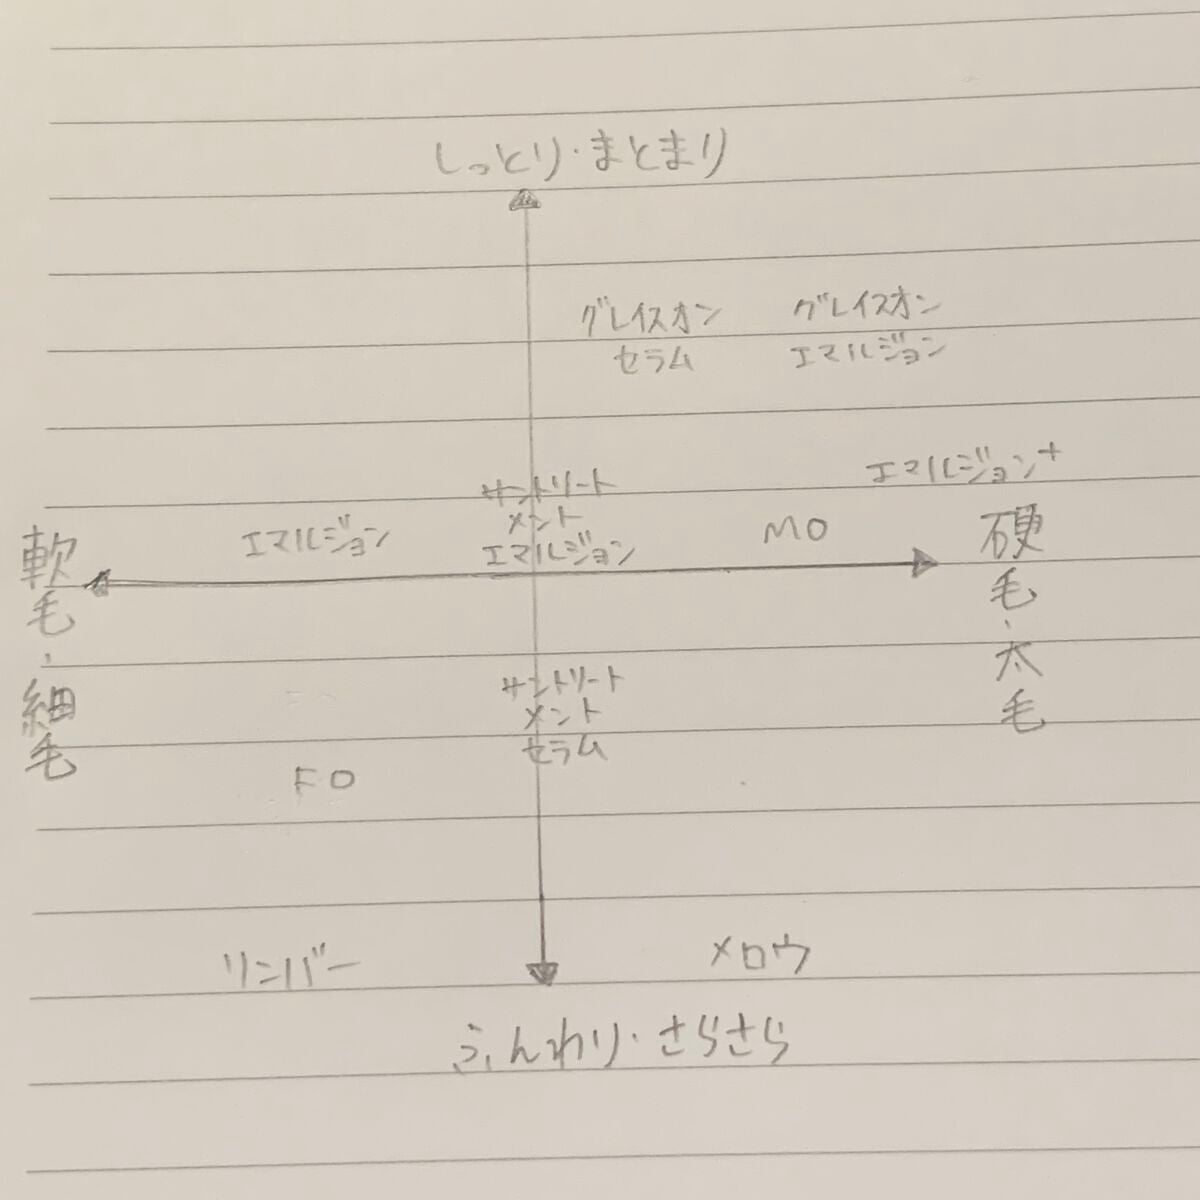 しっとり・まとまり
グレイスオン
セラム
グレイスオン
エマルジョン
エマルジョン+
サントリート
メント
エマルジョン
エマルジョン
MO
軟毛・細毛
硬毛・太毛
サントリート
メント
セラム
FO
リンバー
メロウ
ふんわり・さらさら